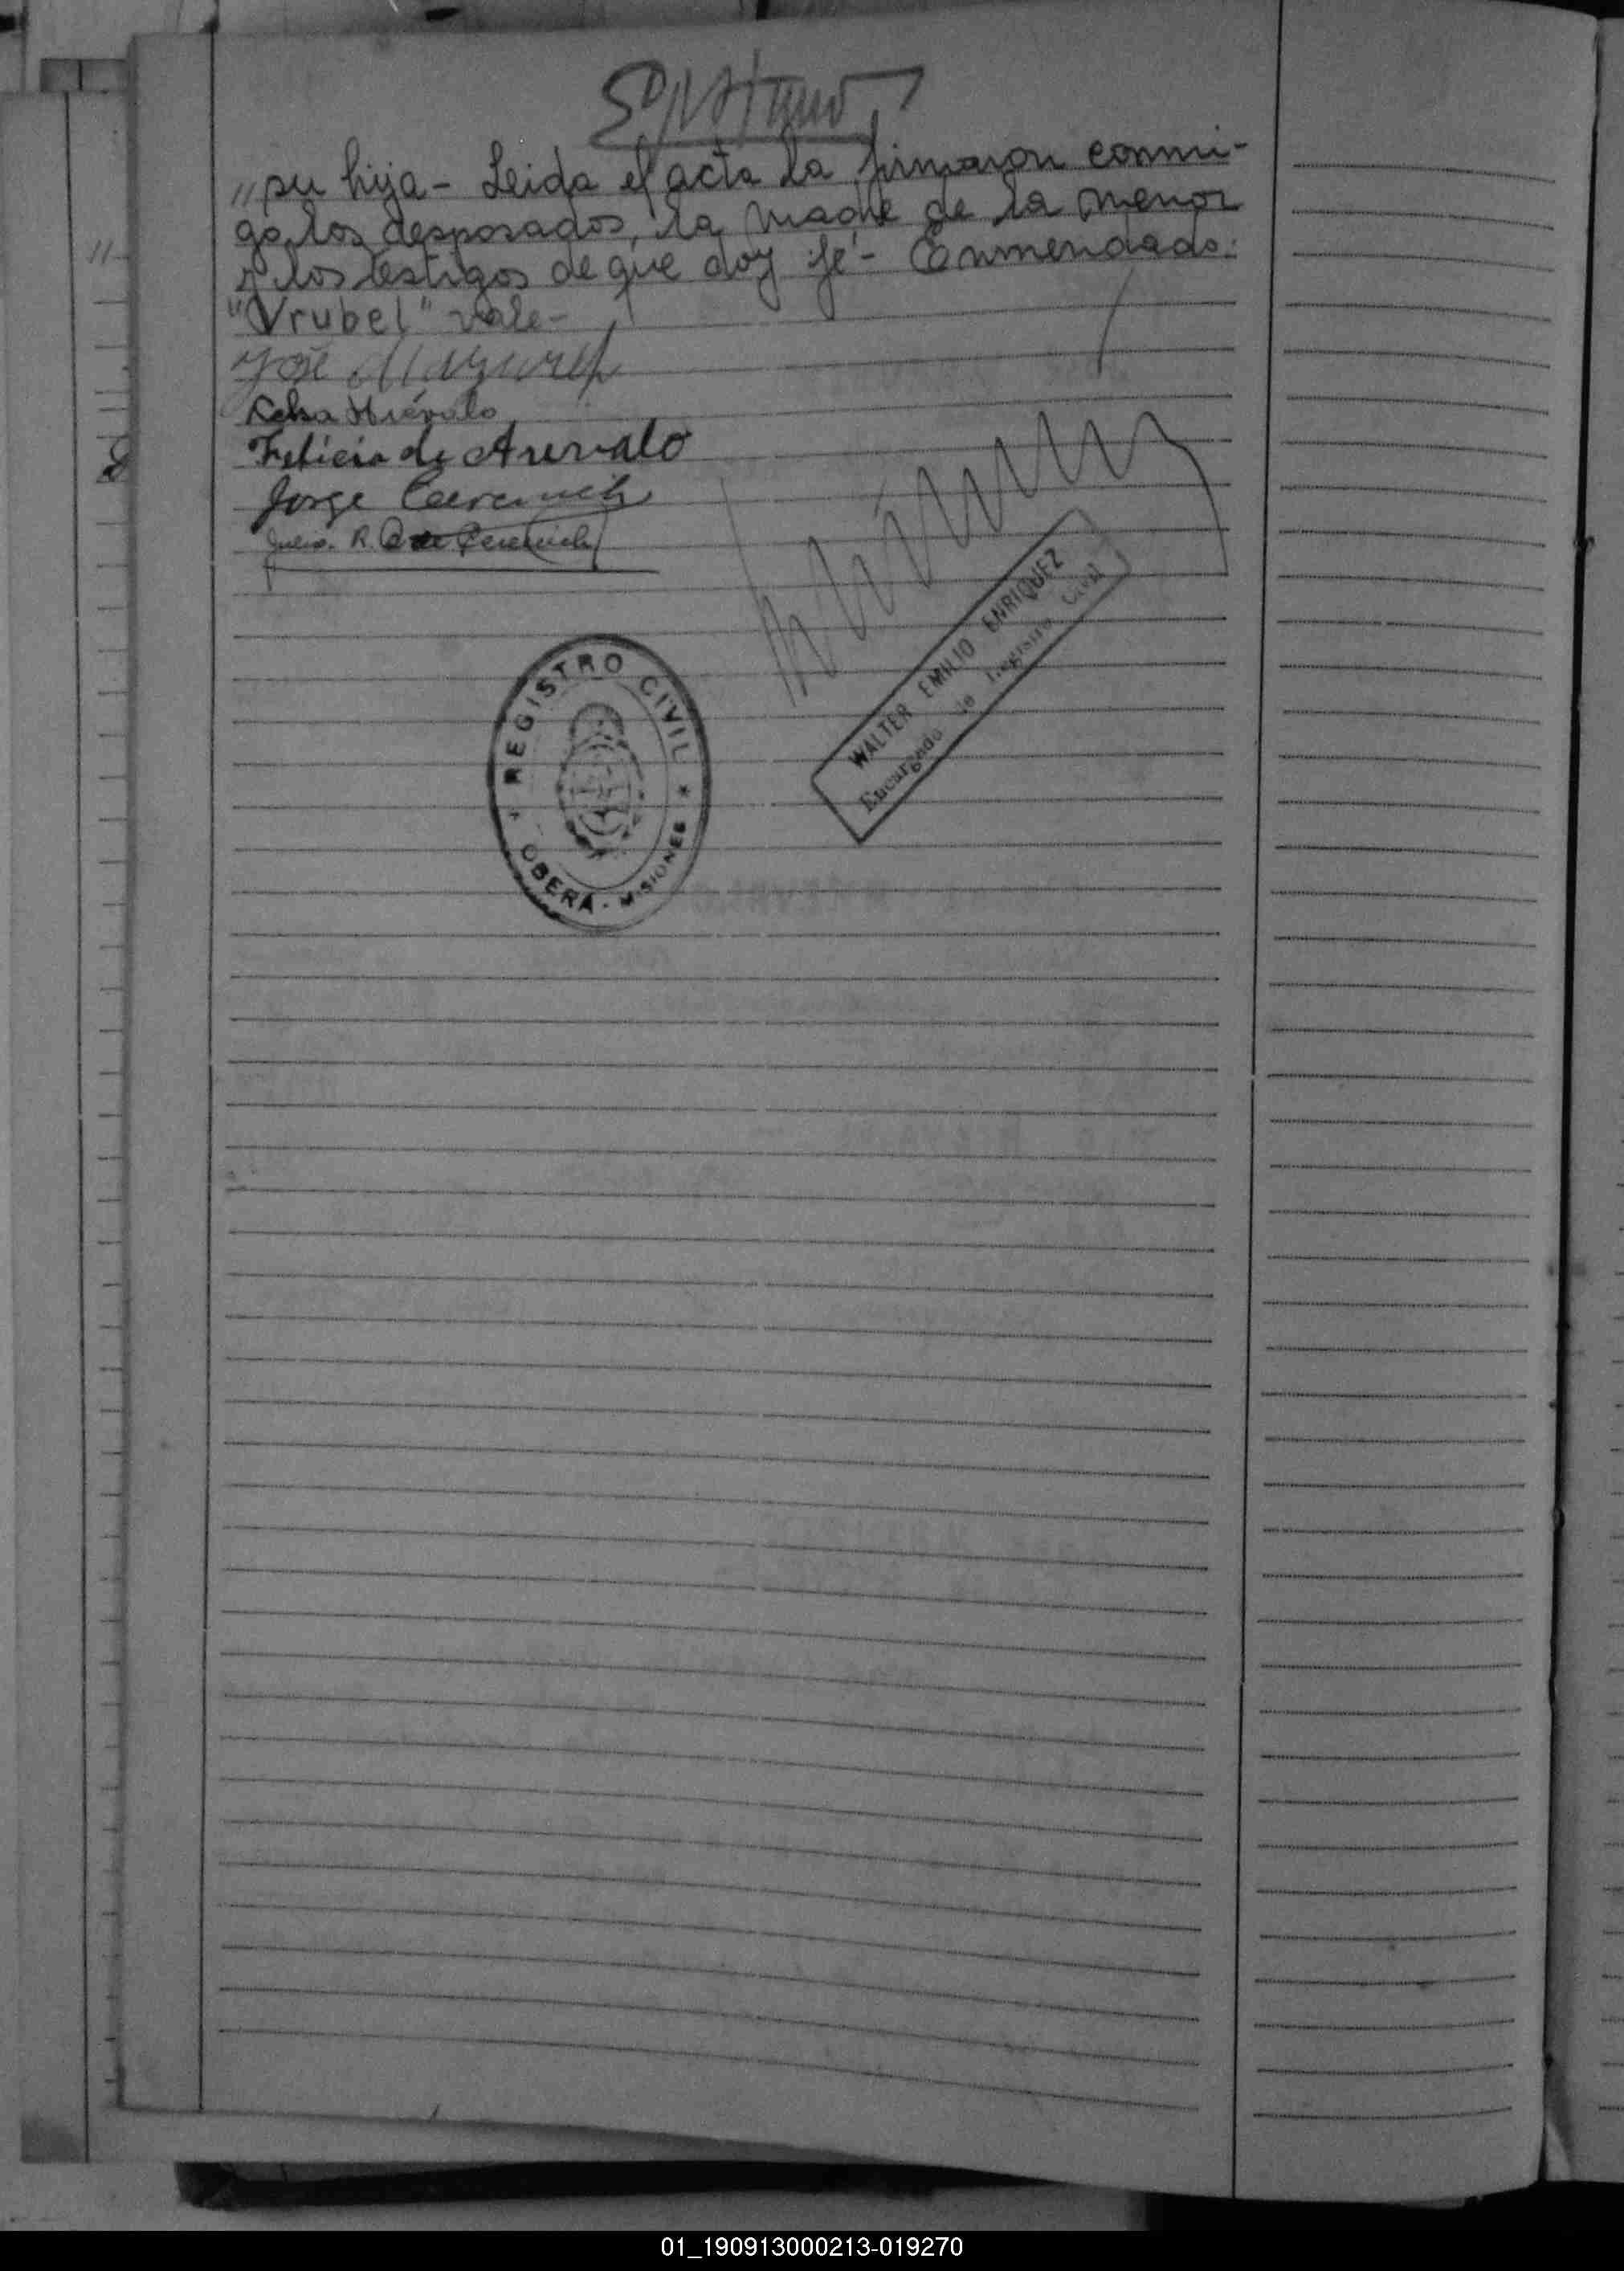 "su hija - Leida el acta la firmaron conmi-
go, los desposados, la madre de la menor
y los testigos de que doy fé - Enmendado:
"Vrubel" vale -
José
Felicia de Arevalo
Jorge
R. de
REGISTRO CIVIL
OBERÁ - MISIONES
WALTER EMILIO ENRIQUEZ
Encargado de Registro Civil
01_190913000213-019270